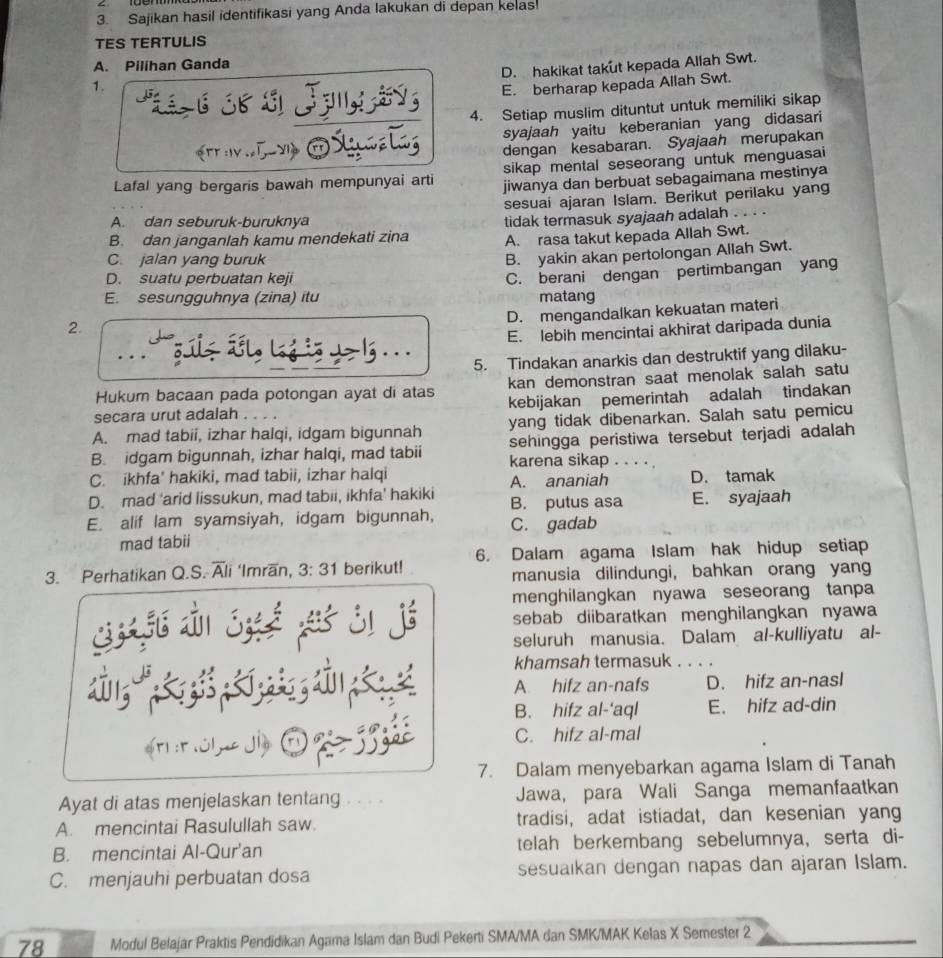 3. Sajikan hasil identifikasi yang Anda lakukan di depan kelas!
TES TERTULIS
A. Pilihan Ganda
1.
وَلَا تَقْرَبُوا الزِّنٰىٓ اِنَّهٗ كَانَ فَاحِشَةًۗ
وَسَاۤءَ سَبِيْلًا ﴿٣٢﴾ ﴿الإسراۤء، ١٧: ٣٢﴾
Lafal yang bergaris bawah mempunyai arti
. . . .
A. dan seburuk-buruknya
B. dan janganlah kamu mendekati zina
C. jalan yang buruk
D. suatu perbuatan keji
E. sesungguhnya (zina) itu
2.
. . . وَاحِدٍ مِّنْهُمَا مِائَةَ جَلْدَةٍۖ . . .
Hukum bacaan pada potongan ayat di atas
secara urut adalah . . . .
A. mad tabii, izhar halqi, idgam bigunnah
B. idgam bigunnah, izhar halqi, mad tabii
C. ikhfa' hakiki, mad tabii, izhar halqi
D. mad 'arid lissukun, mad tabii, ikhfa' hakiki
E. alif lam syamsiyah, idgam bigunnah,
mad tabii
3. Perhatikan Q.S. Āli 'Imrān, 3: 31 berikut!
قُلْ اِنْ كُنْتُمْ تُحِبُّوْنَ اللّٰهَ فَاتَّبِعُوْنِيْ
يُحْبِبْكُمُ اللّٰهُ وَيَغْفِرْ لَكُمْ ذُنُوْبَكُمْۗ وَاللّٰهُ
غَفُوْرٌ رَّحِيْمٌ ﴿٣١﴾ ﴿آل عمران، ٣: ٣١﴾
Ayat di atas menjelaskan tentang . . . .
A. mencintai Rasulullah saw.
B. mencintai Al-Qur'an
C. menjauhi perbuatan dosa
D. hakikat takut kepada Allah Swt.
E. berharap kepada Allah Swt.
4. Setiap muslim dituntut untuk memiliki sikap
syajaah yaitu keberanian yang didasari
dengan kesabaran. Syajaah merupakan
sikap mental seseorang untuk menguasai
jiwanya dan berbuat sebagaimana mestinya
sesuai ajaran Islam. Berikut perilaku yang
tidak termasuk syajaah adalah . . . .
A. rasa takut kepada Allah Swt.
B. yakin akan pertolongan Allah Swt.
C. berani dengan pertimbangan yang
matang
D. mengandalkan kekuatan materi
E. lebih mencintai akhirat daripada dunia
5. Tindakan anarkis dan destruktif yang dilaku-
kan demonstran saat menolak salah satu
kebijakan pemerintah adalah tindakan
yang tidak dibenarkan. Salah satu pemicu
sehingga peristiwa tersebut terjadi adalah
karena sikap . . . .
A. ananiah D. tamak
B. putus asa E. syajaah
C. gadab
6. Dalam agama Islam hak hidup setiap
manusia dilindungi, bahkan orang yang
menghilangkan nyawa seseorang tanpa
sebab diibaratkan menghilangkan nyawa
seluruh manusia. Dalam al-kulliyatu al-
khamsah termasuk . . . .
A. hifz an-nafs D. hifz an-nasl
B. hifz al-'aql E. hifz ad-din
C. hifz al-mal
7. Dalam menyebarkan agama Islam di Tanah
Jawa, para Wali Sanga memanfaatkan
tradisi, adat istiadat, dan kesenian yang
telah berkembang sebelumnya, serta di-
sesuaikan dengan napas dan ajaran Islam.
78 Modul Belajar Praktis Pendidikan Agama Islam dan Budi Pekerti SMA/MA dan SMK/MAK Kelas X Semester 2